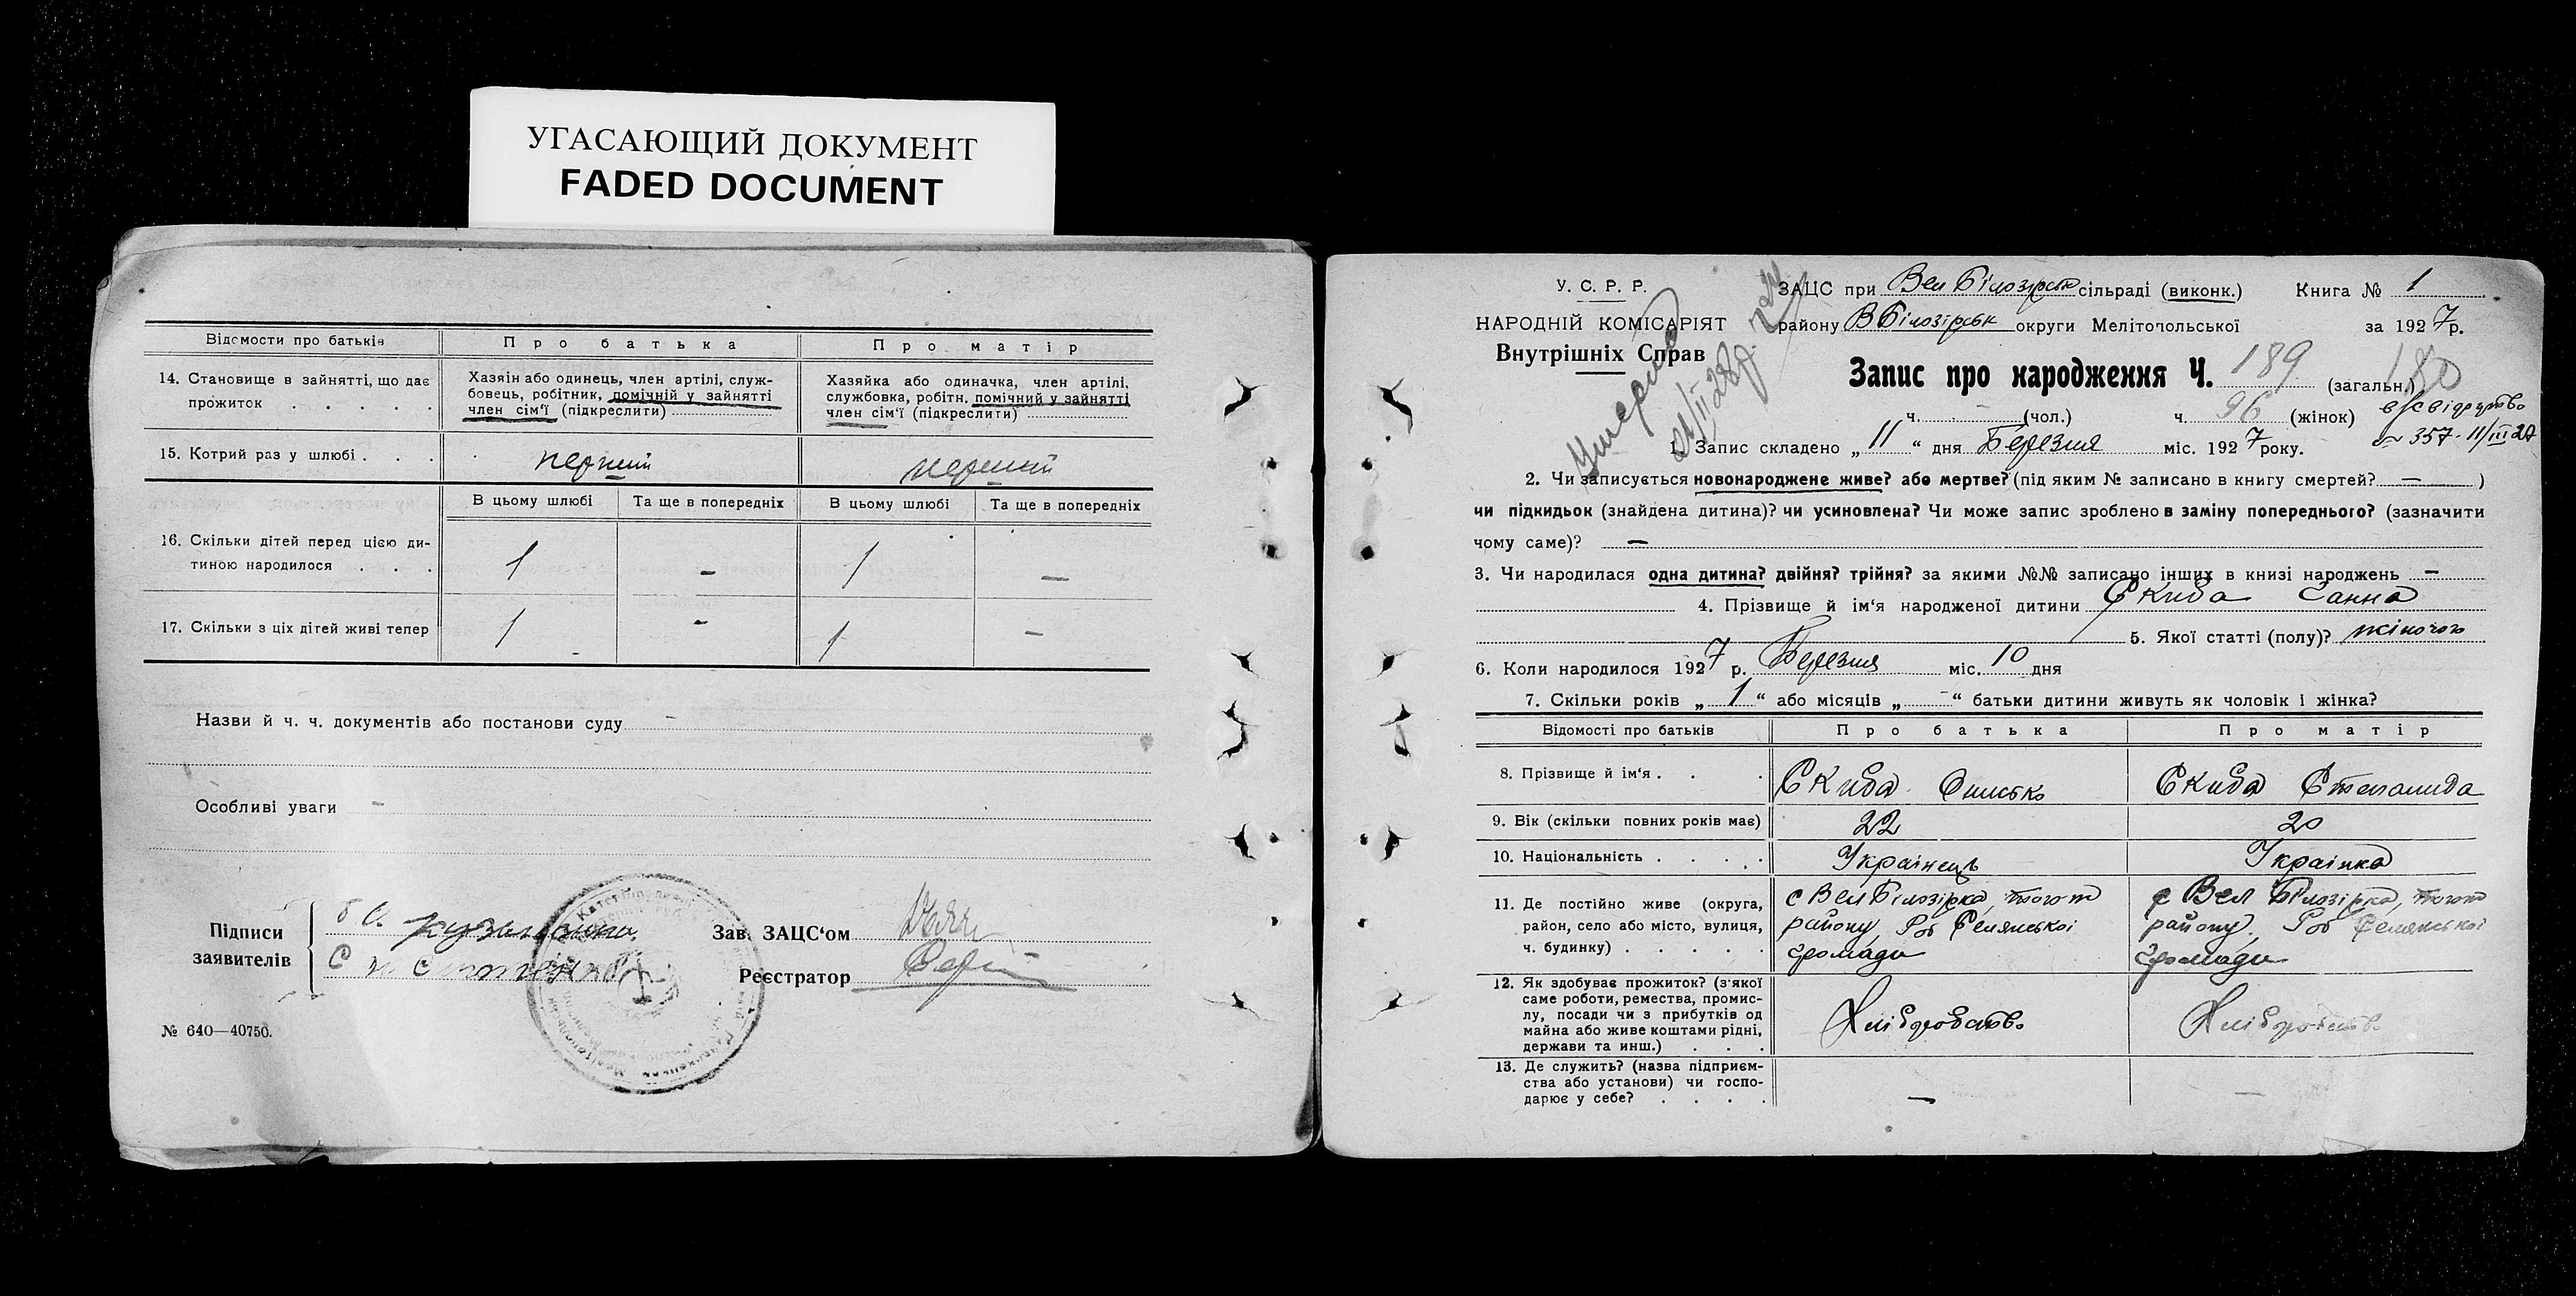 УГАСАЮЩИЙ ДОКУМЕНТ
FADED DOCUMENT
Відомости про батьків
Про батька
Про матір
14. Становище в зайнятті, що дає прожиток . . . . .
Хазяін або одинець, член артілі, служ-
бовець, робітник, помічній у зайнятті
член сім'ї (підкреслити)
Хазяйка або одиначка, член артілі,
службовка, робітн. помічний у зайнятті
член сім'ї (підкреслити)
15. Котрий раз у шлюбі . . .
перший
перший
В цьому шлюбі
Та ще в попередніх
В цьому шлюбі
Та ще в попередніх
16. Скільки дітей перед цією ди-
тиною народилося . . .
1 - 1 -
17. Скільки з ціх дітей живі тепер
1 - 1 -
Назви й ч. ч. документів або постанови суду -
Особливі уваги -
Підписи
заявителів
Зав. ЗАЦС'ом
Реєстратор
№ 640—40750.
У. С. Р. Р.
НАРОДНІЙ КОМІСАРІЯТ
Внутрішніх Справ
ЗАЦС при Вел Білозірськ сільраді (виконк.) Книга № 1
району В Білозірськ округи Мелітопольської за 1927 р.
Запис про народження Ч. 189 (загальн.) 180
ч. - (чол.) ч. 96 (жінок)
№ 357. 11/III 27
1. Запис складено „11“ дня Березня міс. 1927 року.
2. Чи записується новонароджене живе? або мертве? (під яким № записано в книгу смертей? — )
чи підкидьок (знайдена дитина)? чи усиновлена? Чи може запис зроблено в заміну попереднього? (зазначити
чому саме)? —
3. Чи народилася одна дитина? двійня? трійня? за якими №№ записано інших в книзі народжень —
4. Прізвище й ім'я народженої дитини Скиба Ганна
5. Якої статті (полу)? жіночого
6. Коли народилося 1927 р. Березня міс. 10 дня
7. Скільки років „1“ або місяців „-“ батьки дитини живуть як чоловік і жінка?
Відомості про батьків
Про батька
Про матір
8. Прізвище й ім'я . . .
Скиба Онисько
Скиба Степанида
9. Вік (скільки повних років має)
22
20
10. Національність . . . .
Українець
Українка
11. Де постійно живе (округа,
район, село або місто, вулиця,
ч. будинку) . . . . .
с Вел Білозірка, того ж
району, Роб Селянської
громади
с Вел Білозірка, того ж
району, Роб Селянської
громади
12. Як здобуває прожиток? (з'якої
саме роботи, ремества, промис-
лу, посади чи з прибутків од
майна або живе коштами рідні,
держави та инш.) . . .
Хліборобство
Хліборобство
13. Де служить? (назва підприєм-
ства або установи) чи госпо-
дарює у себе? . . . .
—
—